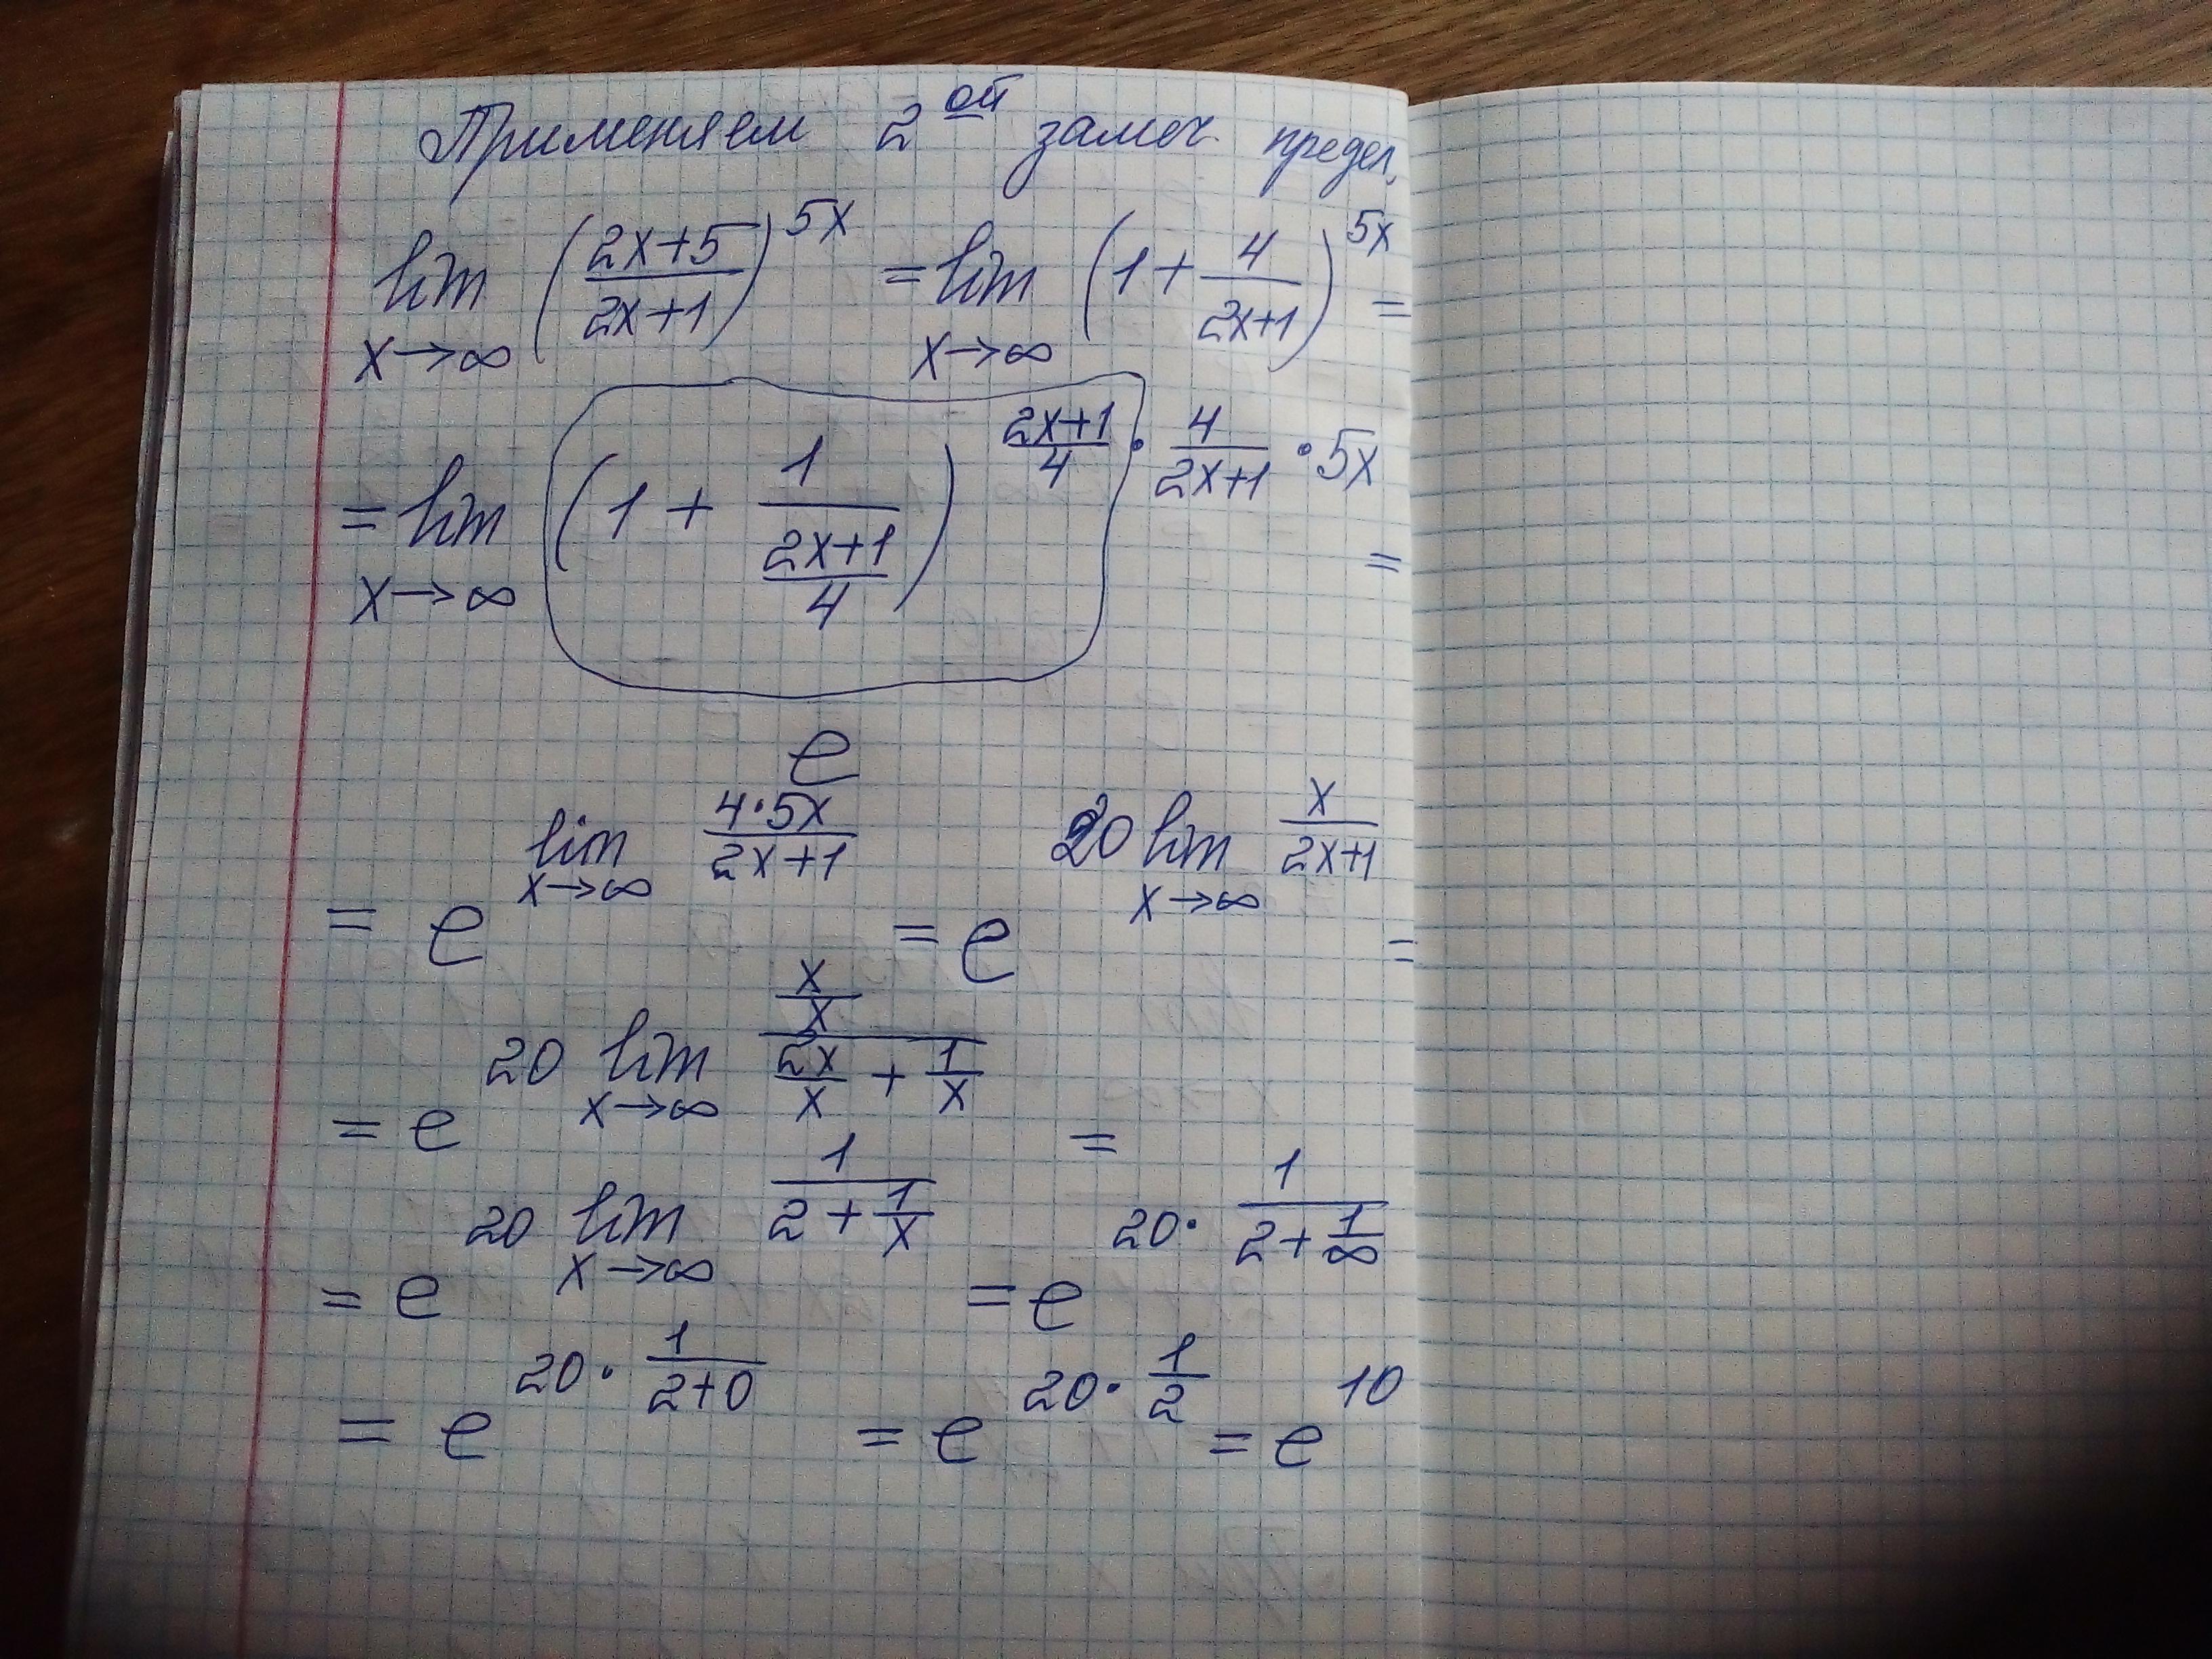 Применяем 2ой замеч. предел.
lim x→∞ ((2x+5)/(2x+1))^(5x) = lim x→∞ (1 + 4/(2x+1))^(5x) =
= lim x→∞ (1 + 1/((2x+1)/4))^((2x+1)/4 · 4/(2x+1) · 5x) =
e
= e^(lim x→∞ (4·5x)/(2x+1)) = e^(20 lim x→∞ x/(2x+1)) =
= e^(20 lim x→∞ (x/x)/(2x/x + 1/x)) =
= e^(20 lim x→∞ 1/(2 + 1/x)) = e^(20 · 1/(2 + 1/∞))
= e^(20 · 1/(2+0)) = e^(20 · 1/2) = e^10